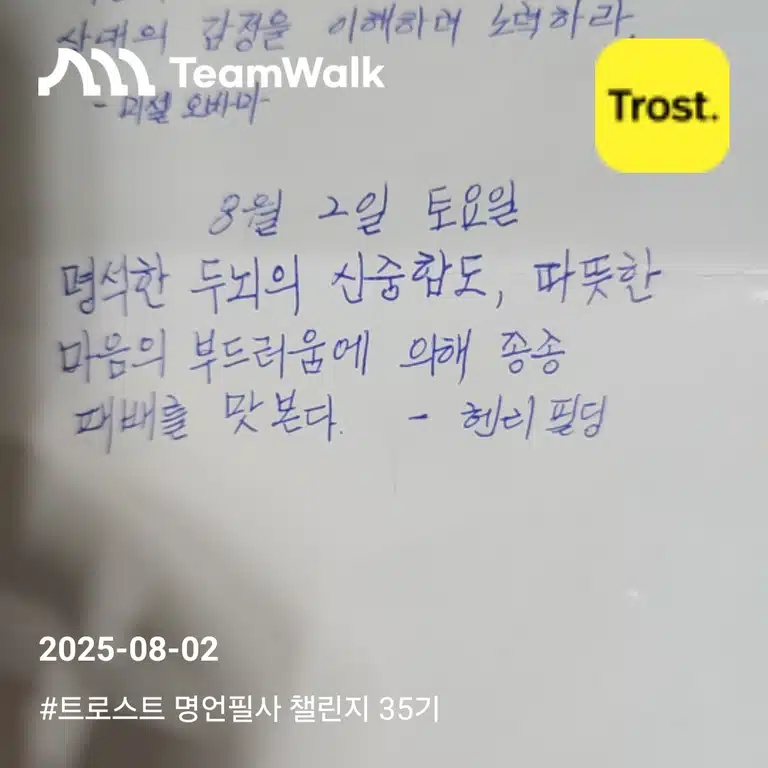 상대의 감정을 이해하려 노력하라.
TeamWalk
Trost.
- 미셸 오바마-
8월 2일 토요일
명석한 두뇌의 신중함도, 따뜻한
마음의 부드러움에 의해 종종
패배를 맛본다. - 헨리 필딩
2025-08-02
#트로스트 명언필사 챌린지 35기